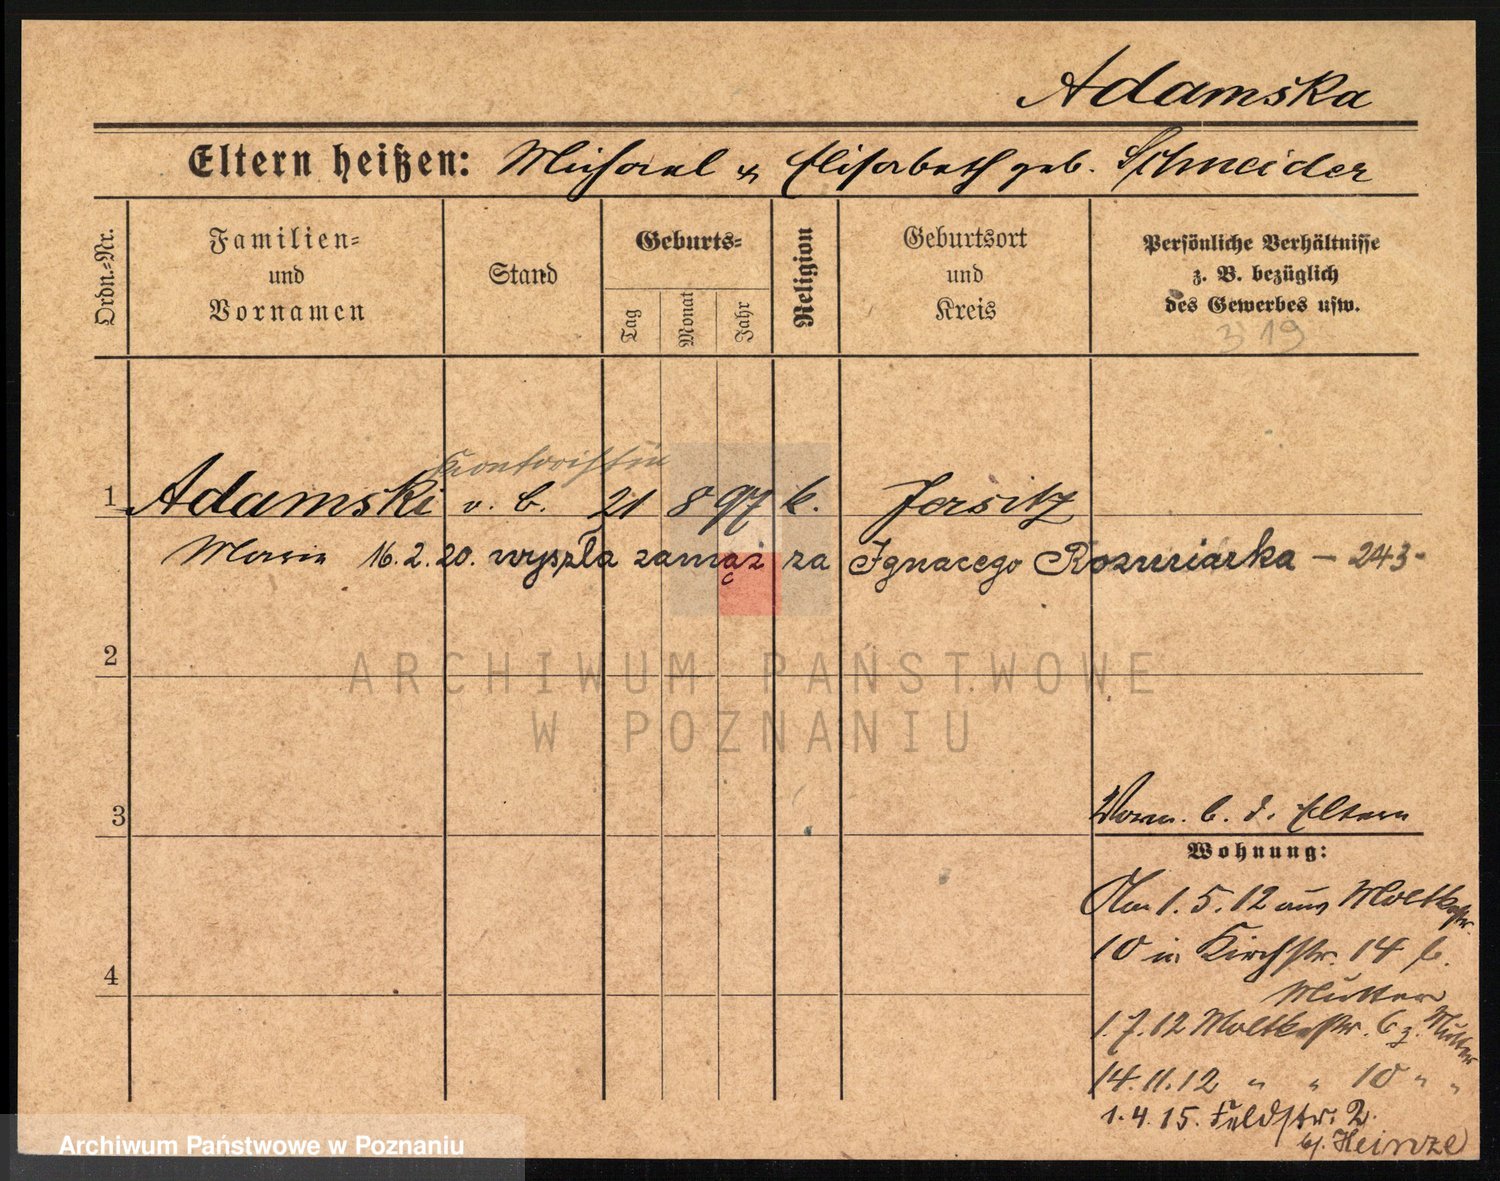 Adamska
Eltern heißen: Michael & Elisabeth geb. Schneider
Ordn.-Nr.
Familien-
und
Vornamen
Stand
Geburts-
Tag
Monat
Jahr
Religion
Geburtsort
und
Kreis
Persönliche Verhältnisse
z. B. bezüglich
des Gewerbes usw.
319
Kontoristin
1 Adamski v. B. 21 8 97 k. Jersitz
Marie 16.2.20. wyszła zamąż za Ignacego Rozmiarka – 243-
2
ARCHIWUM PAŃSTWOWE
W POZNANIU
3
b. d. Eltern
Wohnung:
Am 1.5.12 aus Moltkestr.
10 in Kirchstr. 14 b.
Mutter
1.7.12 Moltkestr. 6 z. Mutter
4
14.11.12 " " 10 " "
1.4.15. Feldstr. 2.
bj. Heinze
Archiwum Państwowe w Poznaniu